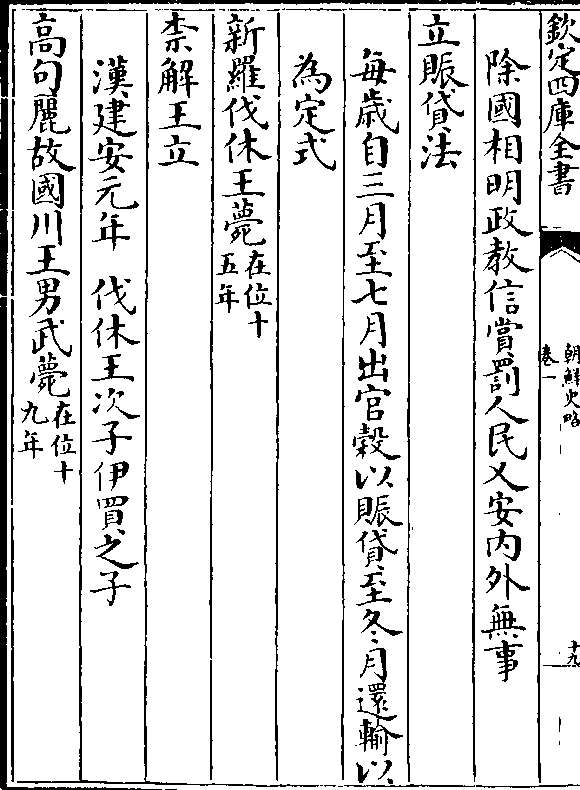 欽定四庫全書
朝鮮史略
卷一
十九
除國相明政教信賞罰人民乂安内外無事
立賑貸法
每歳自三月至七月出官穀以賑貸至冬月還輸以
為定式
新羅伐休王薨在位十五年
柰解王立
漢建安元年 伐休王次子伊買之子
高句麗故國川王男武薨在位十九年